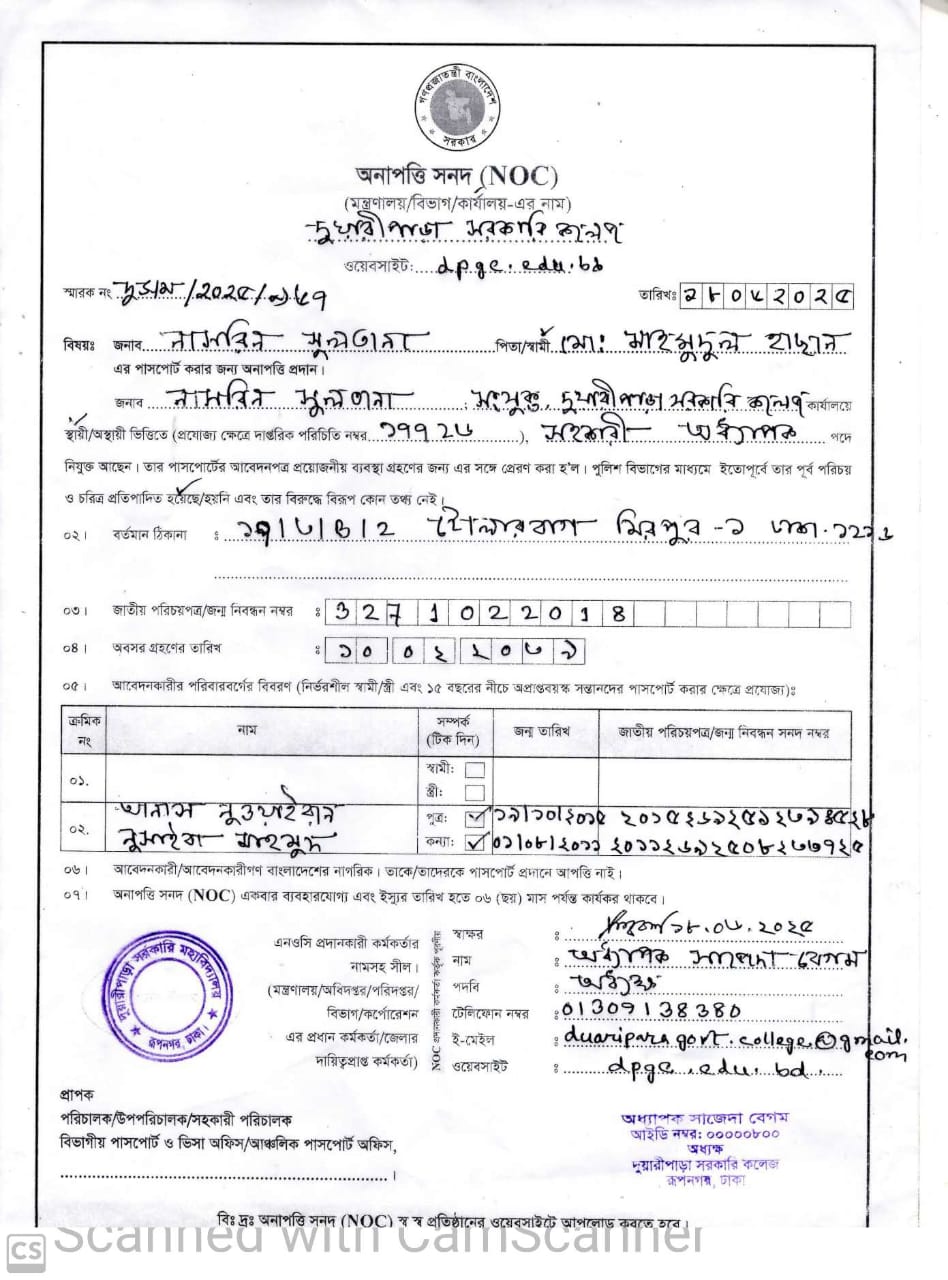 গণপ্রজাতন্ত্রী বাংলাদেশ
সরকার
অনাপত্তি সনদ (NOC)
(মন্ত্রণালয়/বিভাগ/কার্যালয়-এর নাম)
দুয়ারীপাড়া সরকারি কলেজ
ওয়েবসাইট: dpgc.edu.bd
স্মারক নং
তারিখঃ ১৮০৫২০২৫
বিষয়ঃ জনাব নাসরিন সুলতানা পিতা/স্বামী মোঃ মাহমুদুল হাছান
এর পাসপোর্ট করার জন্য অনাপত্তি প্রদান।
জনাব নাসরিন সুলতানা , সংযুক্ত, দুয়ারীপাড়া সরকারি কলেজ কার্যালয়ে
স্থায়ী/অস্থায়ী ভিত্তিতে (প্রযোজ্য ক্ষেত্রে দাপ্তরিক পরিচিতি নম্বর ১৭৭২৬ ), সহকারী অধ্যাপক পদে
নিযুক্ত আছেন। তার পাসপোর্টের আবেদনপত্র প্রয়োজনীয় ব্যবস্থা গ্রহণের জন্য এর সঙ্গে প্রেরণ করা হ'ল। পুলিশ বিভাগের মাধ্যমে ইতোপূর্বে তার পূর্ব পরিচয়
ও চরিত্র প্রতিপাদিত হয়েছে/হয়নি এবং তার বিরুদ্ধে বিরূপ কোন তথ্য নেই।
০২। বর্তমান ঠিকানা : টোলারবাগ মিরপুর -১ ঢাকা-
০৩। জাতীয় পরিচয়পত্র/জন্ম নিবন্ধন নম্বর : 3271022018
০৪। অবসর গ্রহণের তারিখ :
০৫। আবেদনকারীর পরিবারবর্গের বিবরণ (নির্ভরশীল স্বামী/স্ত্রী এবং ১৫ বছরের নীচে অপ্রাপ্তবয়স্ক সন্তানদের পাসপোর্ট করার ক্ষেত্রে প্রযোজ্য)ঃ
ক্রমিক নং নাম সম্পর্ক (টিক দিন) জন্ম তারিখ জাতীয় পরিচয়পত্র/জন্ম নিবন্ধন সনদ নম্বর
০১. স্বামী:
স্ত্রী:
০২. আনাস পুত্র:
নুসাইবা মাহমুদ কন্যা:
০৬। আবেদনকারী/আবেদনকারীগণ বাংলাদেশের নাগরিক। তাকে/তাদেরকে পাসপোর্ট প্রদানে আপত্তি নাই।
০৭। অনাপত্তি সনদ (NOC) একবার ব্যবহারযোগ্য এবং ইস্যুর তারিখ হতে ০৬ (ছয়) মাস পর্যন্ত কার্যকর থাকবে।
দুয়ারীপাড়া সরকারি মহাবিদ্যালয়
রূপনগর, ঢাকা।
এনওসি প্রদানকারী কর্মকর্তার
নামসহ সীল।
(মন্ত্রণালয়/অধিদপ্তর/পরিদপ্তর/
বিভাগ/কর্পোরেশন
এর প্রধান কর্মকর্তা/জেলার
দায়িত্বপ্রাপ্ত কর্মকর্তা)
NOC প্রদানকারী কর্মকর্তা কর্তৃক পূরণীয়
স্বাক্ষর :
নাম : অধ্যাপক সাজেদা বেগম
পদবি : অধ্যক্ষ
টেলিফোন নম্বর : 01309138380
ই-মেইল : duaripara govt.college@gmail.com
ওয়েবসাইট : dpgc.edu.bd.
প্রাপক
পরিচালক/উপপরিচালক/সহকারী পরিচালক
বিভাগীয় পাসপোর্ট ও ভিসা অফিস/আঞ্চলিক পাসপোর্ট অফিস,
অধ্যাপক সাজেদা বেগম
আইডি নম্বর: ০০০০০৮০০
অধ্যক্ষ
দুয়ারীপাড়া সরকারি কলেজ
রূপনগর, ঢাকা
বিঃ দ্রঃ অনাপত্তি সনদ (NOC) স্ব স্ব প্রতিষ্ঠানের ওয়েবসাইটে আপলোড করতে হবে।
CS Scanned with CamScanner